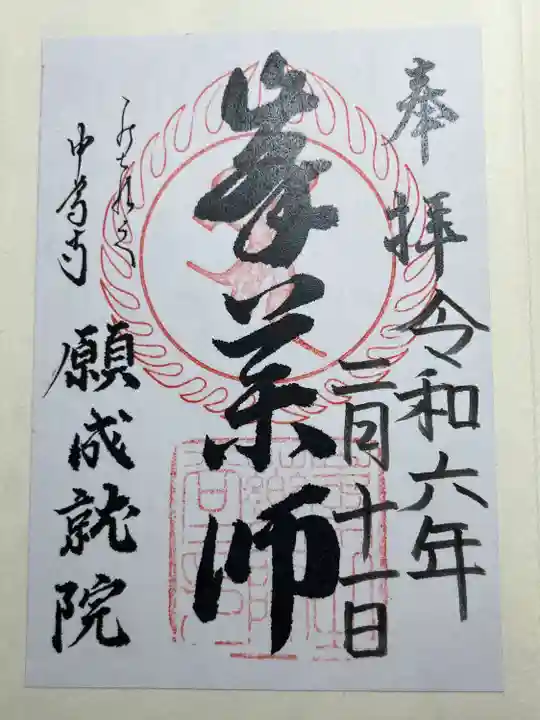 奉拝
令和六年
二月十一日
峯薬師
中尊寺
願成就院